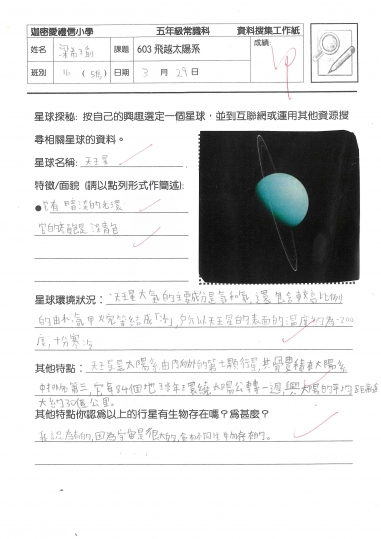 迦密愛禮信小學 五年級常識科 資料搜集工作紙
姓名 課題 603 飛越太陽系 成績:
班別 日期 3 月 29 日
星球探秘: 按自己的興趣選定一個星球，並到互聯網或運用其他資源搜
尋相關星球的資料。
星球名稱: 天王星
特徵/面貌 (請以點列形式作簡述):
●它有暗淡的光環
它的 是淺青色
星球環境狀況: 天王星大氣的主要成分是氫和氦,還包含較高比例
的由水,氨,甲烷等結成「冰」,所以天王星的表面的溫度約為-200
度,十分寒冷
其他特點: 天王星是太陽系由內向外的第七顆行星,其 體積在太陽系
中排名第三, 84個地球年 環繞太陽公轉一週,與太陽的平均距離
大約30億公里。
其他特點你認為以上的行星有生物存在嗎？為甚麼？
我認為有的,因為宇宙是很大的, 生物存在的。